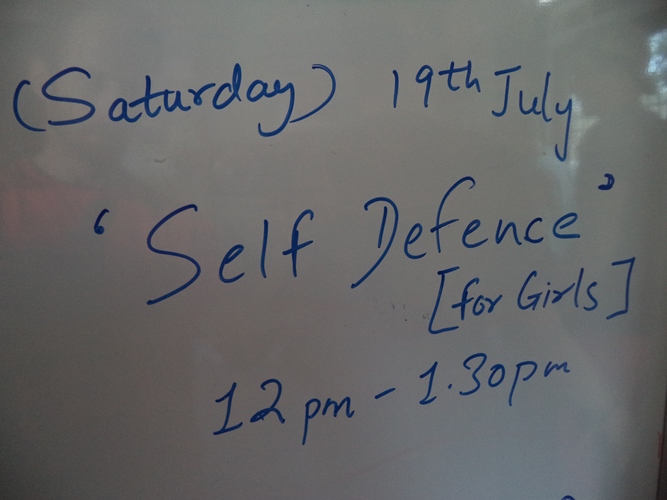 (Saturday) 19th July
'Self Defence'
[for Girls]
12 pm - 1.30pm